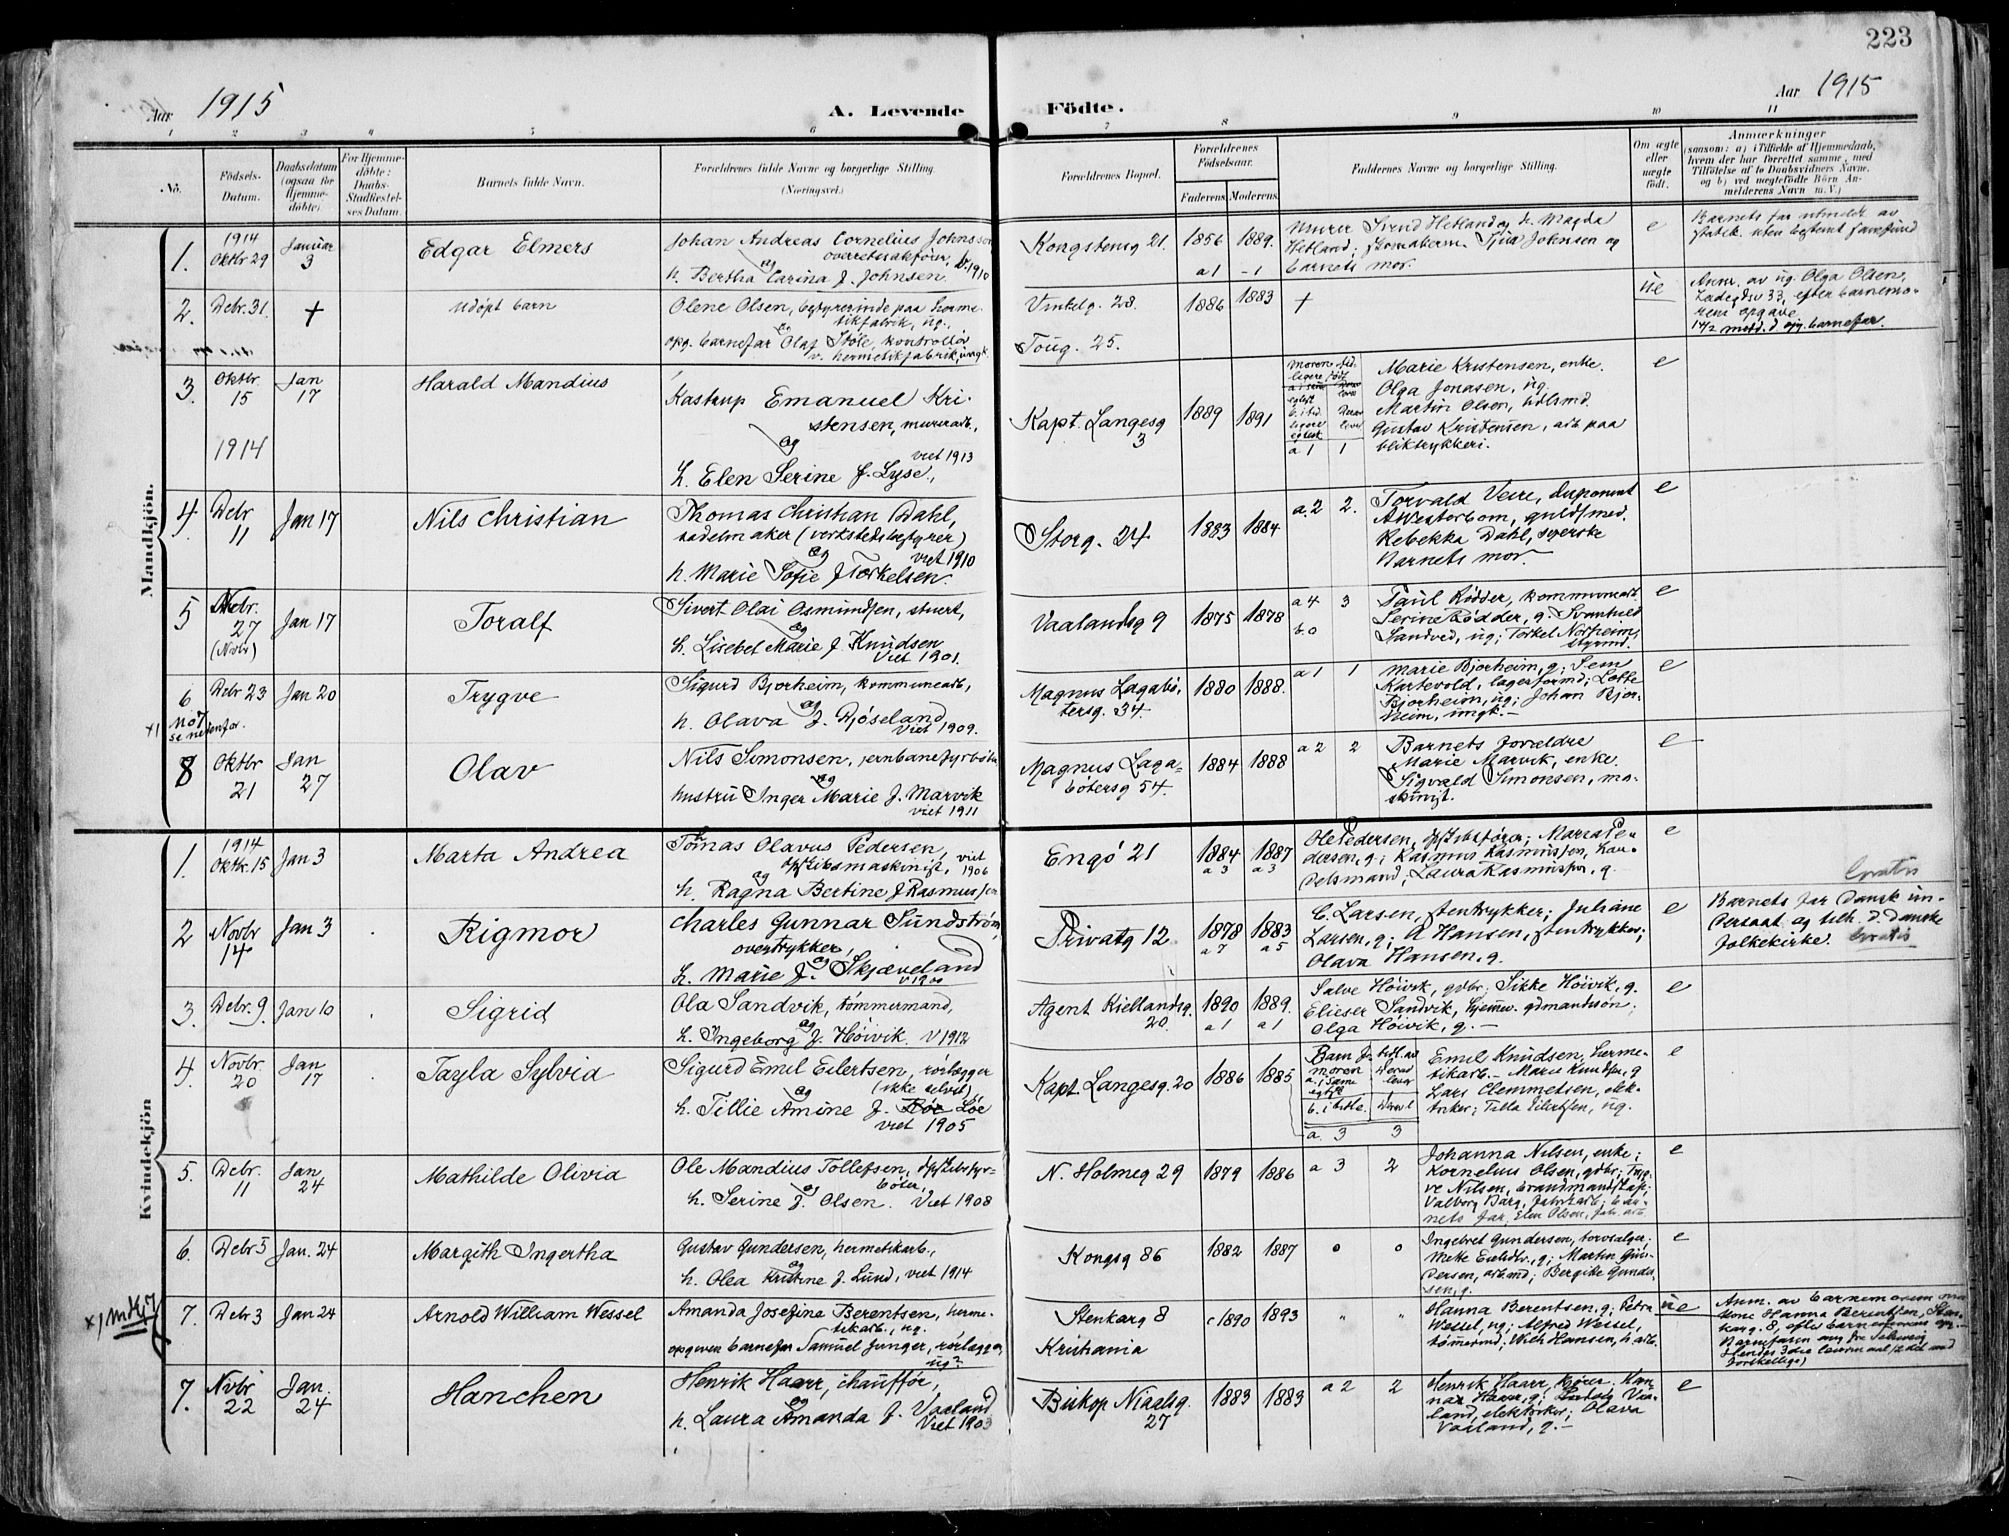 223
Aar 1915
A. Levende Födte.
Aar 1915
1 2 3 4 5 6 7 8 9 10 11
No.
Födsels-Datum.
Daabsdatum (ogsaa for Hjemme-döbte).
For Hjemme-döbte: Daabs-Stadfæstel-ses Datum.
Barnets fulde Navn.
Forældrenes fulde Navne og borgerlige Stilling (Næringsvei.)
Forældrenes Bopæl.
Forældrenes Födselsaar.
Faderens. Moderens.
Faddernes Navne og borgerlige Stilling.
Om ægte eller uægte født.
Anmærkninger
(saasom: a) i Tilfælde af Hjemmedaab,
hvem der har forrettet samme, med
Tilföielse af to Daabsvidners Navne.
og b) ved uægtefödte Börn An-
melderens Navn m. V.)
Mandkjön.
1.
1914
Oktbr 29
Januar
3
Edgar Elmers
Johan Andreas Cornelius Johnsen
overretssakfører, V. 1910
og
h. Bertha Carina f. Johnsen.
Kongstensg 21.
1856 1889.
a 1 - 1
Murer Svend Hetland og h. Magda
Hetland;
barnets mor.
e
Barnets far utmeldt av
statsk. uten bestemt
2.
Debr. 31.
+
Udøpt barn
Olene Olsen, bestyrerinde paa herme-
tikfabrik, ug.,
og
opg. barnefar Olaf Støle, kontrollør
v. hermetikfabrik, ungk.
Vinkelg. 28.
Toug. 25.
1886 1883
+
ue
Anm. av ug. Olga Olsen,
Ladegdsv 33, efter barnemo-
rens opgave
14/2 medd. d. opg. barnefar.
3.
Oktbr.
15
1914
Jan
17
Harald Mandius
Kastrup Emanuel Kri-
stensen, murerarb.,
og
viet 1913
h. Elen Serine f. Lyse.,
Kapt. Langesg
3
1889 1891
a 1 1
Marie Kristensen, enke.
Olga Jonasen, ug.
Martin Olsen, udlsmd.
Gustav Kristensen, arb paa
bliktrykkeri.
e
4.
Debr
11
Jan 17
Nils Christian
Thomas Christian Dahl,
sadelmaker (verkstedsbestyrer)
og viet 1910
h. Marie Sofie f Torkelsen.
Storg. 24
1883 1884
a. 2 2.
Torvald Veire, disponent
A Westerbom, guldsmed.
Rebekka Dahl, syerske
Barnets mor.
e
5
27
(Novbr)
Jan 17
Toralf
Sivert Olai Osmundsen, stuert,
og
h. Lisebet Marie f. Knudsen
Viet 1901.
Vaalandsg 9
1875 1878
a 4 3
b. 0
Paul Rødder, kommunearb
Serine Rødder, g. Svanhild
Sandved, ug; Torkel Norheim,
styrmd.
e
6
No 7
se nedenfor.
Debr 23
Jan 20
Trygve
Sigurd Bjorheim, kommunearb.,
og
h. Olava f. Djøseland
Viet 1909.
Magnus Lagabø-
tersg. 34.
1880 1888.
a 1 1
Marie Bjorheim, g; Sem
Kartevold, lagerformd; Lotte
Bjorheim, ug; Johan Bjor-
heim, ungk. -
e
8
Oktbr
21
Jan
27
Olav
Nils Simonsen, jernbanefyrbøter
og
hustru Inger Marie f. Marvik
viet 1911
Magnus Laga-
bøtersg 54.
1884 1888
a 2 2
Barnets forældre
Marie Marvik, enke.
Sigvald Simonsen, ma-
skinist.
e
Kvindekjön
1.
1914
Oktbr. 15
Jan 3
Marta Andrea
Tomas Olavus Pedersen,
dpskibsmaskinist, viet 1906
og
h. Ragna Bertine f Rasmussen
Engø 21
1884 1887
a 3 a 3
Ole Pedersen, dpskibsfører; Maria Pe-
dersen, g; Rasmus Rasmussen, han-
delsmand; Laura Rasmussen, g.
e
2
Novbr
14
Jan 3
Rigmor
Charles Gunnar Sundstrøm,
overtrykker,
og
h. Marie f. Skjæveland
V 1900
Privatg 12
1878 1883
a 7 a 5
C. Larsen, stentrykker; Juliane
Larsen, g; A Hansen, stentrykker;
Olava Hansen, g.
e
Gratis
Barnets far Dansk un-
dersaat og tilh. d. Danske
folkekirke. Gratis
3.
Debr. 9.
Jan 10
Sigrid
Ola Sandvik, tømmermand,
og
h. Ingeborg f. Høivik. V 1912
Agent Kiellandsg.
20.
1890 1889.
a 1 a 1
Salve Høivik, gdbr; Sikke Høivik, g.
Elieser Sandvik, hjemmev. gdmandssøn;
Olga Høivik, g. -
e
4.
Novbr
20
Jan
17
Tayla Sylvia
Sigurd Emil Eilertsen, rørlægger
(ikke selvst)
og
h. Tillie Amine f. Løe
viet 1905
Kapt. Langesg. 20
1886 1885
a. 3 3
Emil Knudsen, herme-
tikarb. - Marie Knudsen, g
Lars Clemmetsen, elek-
triker; Tilla Eilertsen, ug.
e
5.
Debr.
11
Jan
24
Mathilde Olivia
Ole Mandius Tollefsen, dpskibsfyr-
bøter,
og
h. Serine f. Olsen. Viet 1908
N. Holmeg 29
1879 1886
a 3 2
Johanna Nilsen, enke;
Kornelius Olsen, gdbr; Tryg-
ve Nilsen, brandmand;
Valborg Berg, fabrikarb; bar-
nets far, Elen Olsen, fabr. arb.
e
6.
Debr 5
Jan. 24
Margith Ingertha
Gustav Gundersen, hermetikarb.,
og
h. Olea Kristine f. Lund, viet 1914
Kongsg 86
1882 1887
0 0
Ingebret Gundersen, torvsælger;
Martin Gun-
dersen, arbmd; Bergitte Gunder-
sen, g.
e
x) Mk. 7
7.
Debr 3
Jan 24
Arnold William Wessel
Amanda Josefine Berentsen, herme-
tikarb., ug.
opgiven barnefar Samuel Junger, rørlægger,
ug?
Stenkarg 8
Kristiania
c 1890 1893
" "
Hanna Berentsen, g; Petra
Wessel, ug; Alfred Wessel,
tømmermd; Wilh Hansen, h. arb.
ue
Anm. av barnemorens mo-
Hanna Berentsen, Sten-
karg. 8, efter barnemorens opg. -
7.
Nvbr
22
Jan.
24
Hanchen
Henrik Haarr, chauffør,
og
h. Laura Amanda f. Vaaland
Viet 1903
Biskop Niaalsg.
27
1883 1883
a 2 2
Henrik Haarr, kjører. Han-
na Haarr, g; Ludvig Vaa-
land, elektriker; Olava
Vaaland, g. -
e